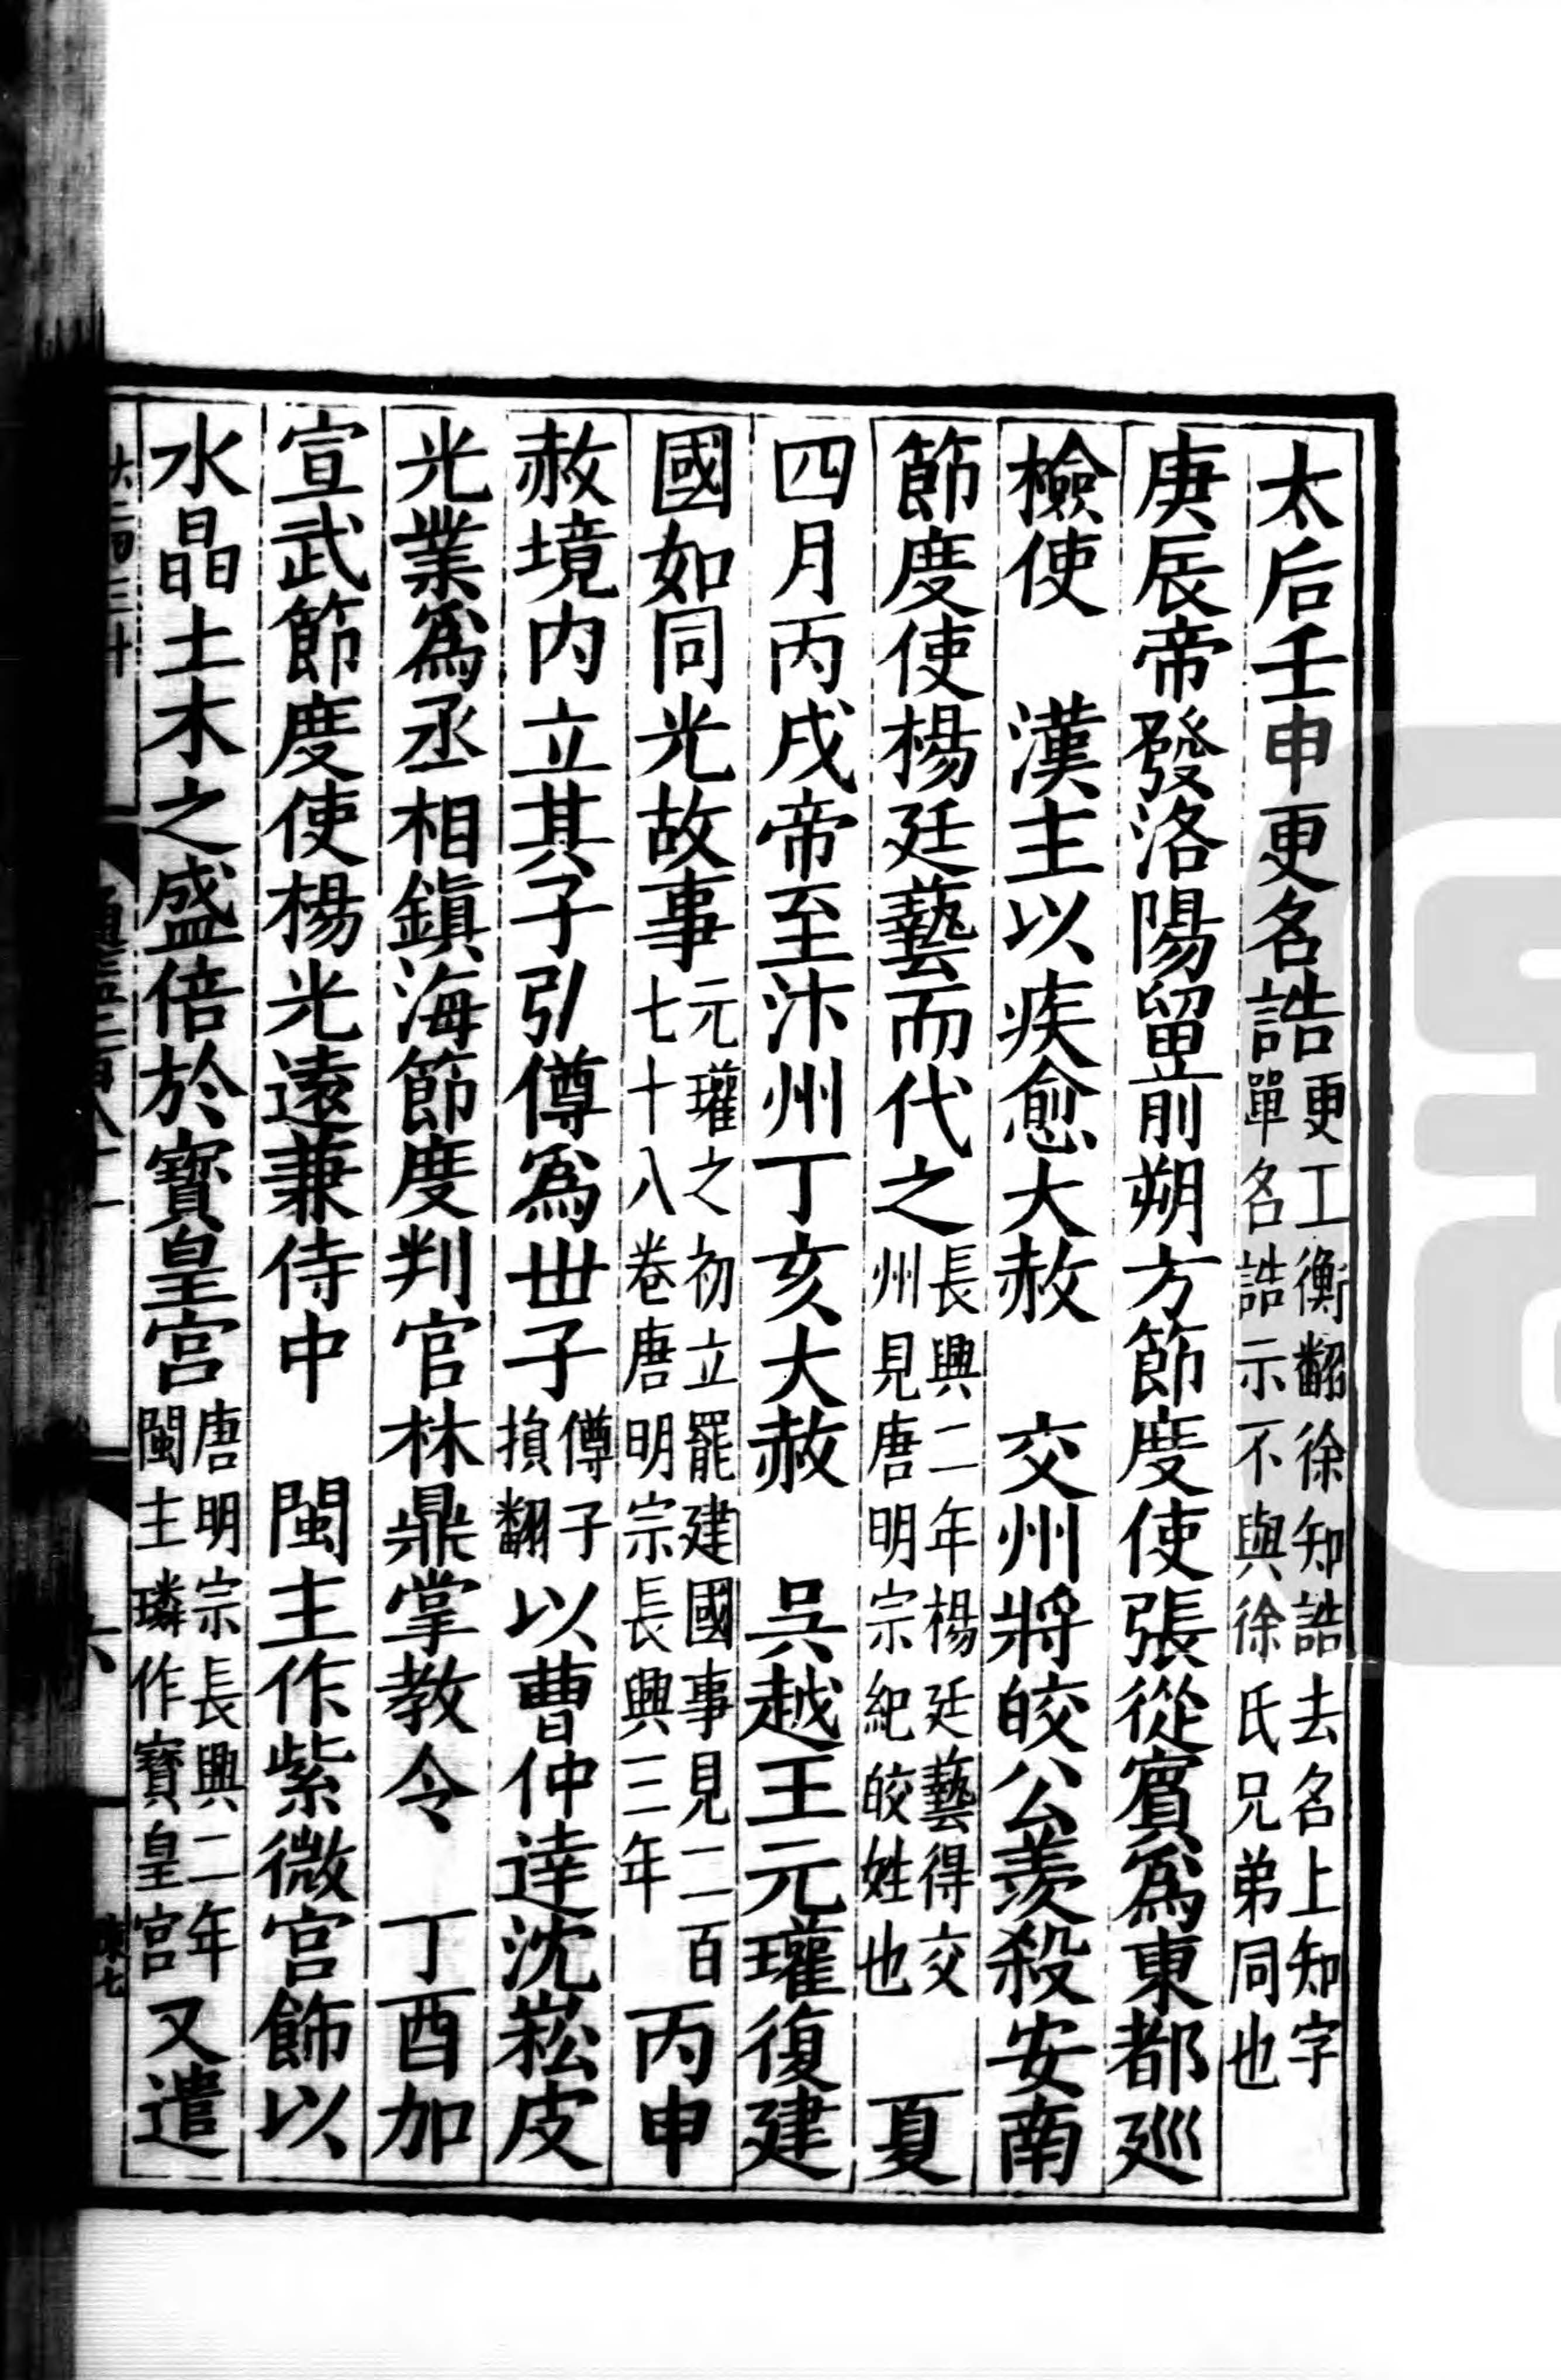 太后壬申更名誥更工衡翻徐知誥去名上知字單名誥示不與徐氏兄弟同也
庚辰帝發洛陽留前朔方節度使張從賓爲東都廵
檢使　漢主以疾愈大赦　交州將皎公羨殺安南
節度使楊廷藝而代之長興二年楊廷藝得交州見唐明宗紀皎姓也　夏
四月丙戌帝至汴州丁亥大赦　吳越王元瓘復建
國如同光故事元瓘之初立罷建國事見二百七十八卷唐明宗長興三年　丙申
赦境内立其子引僔爲丗子僔子損翻以曹仲達沈崧皮
光業爲丞相鎭海節度判官林鼎掌教令　丁酉加
宣武節度使楊光遠兼侍中　閩主作紫微宫飾以
水晶土木之盛倍於寳皇宫唐明宗長興二年閩主璘作寳皇宫又遣